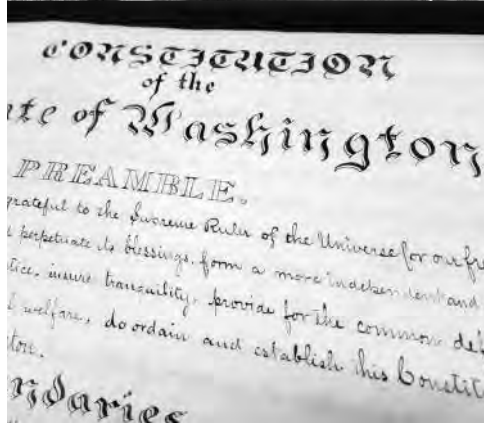 CONSTITUTION
of the
ate of Washington
PREAMBLE.
grateful to the Supreme Ruler of the Universe for our fr
perpetuate its blessings, form a more independent and
tice, insure tranquility, provide for the common def
l welfare, do ordain and establish this Constit
ton.
ndaries